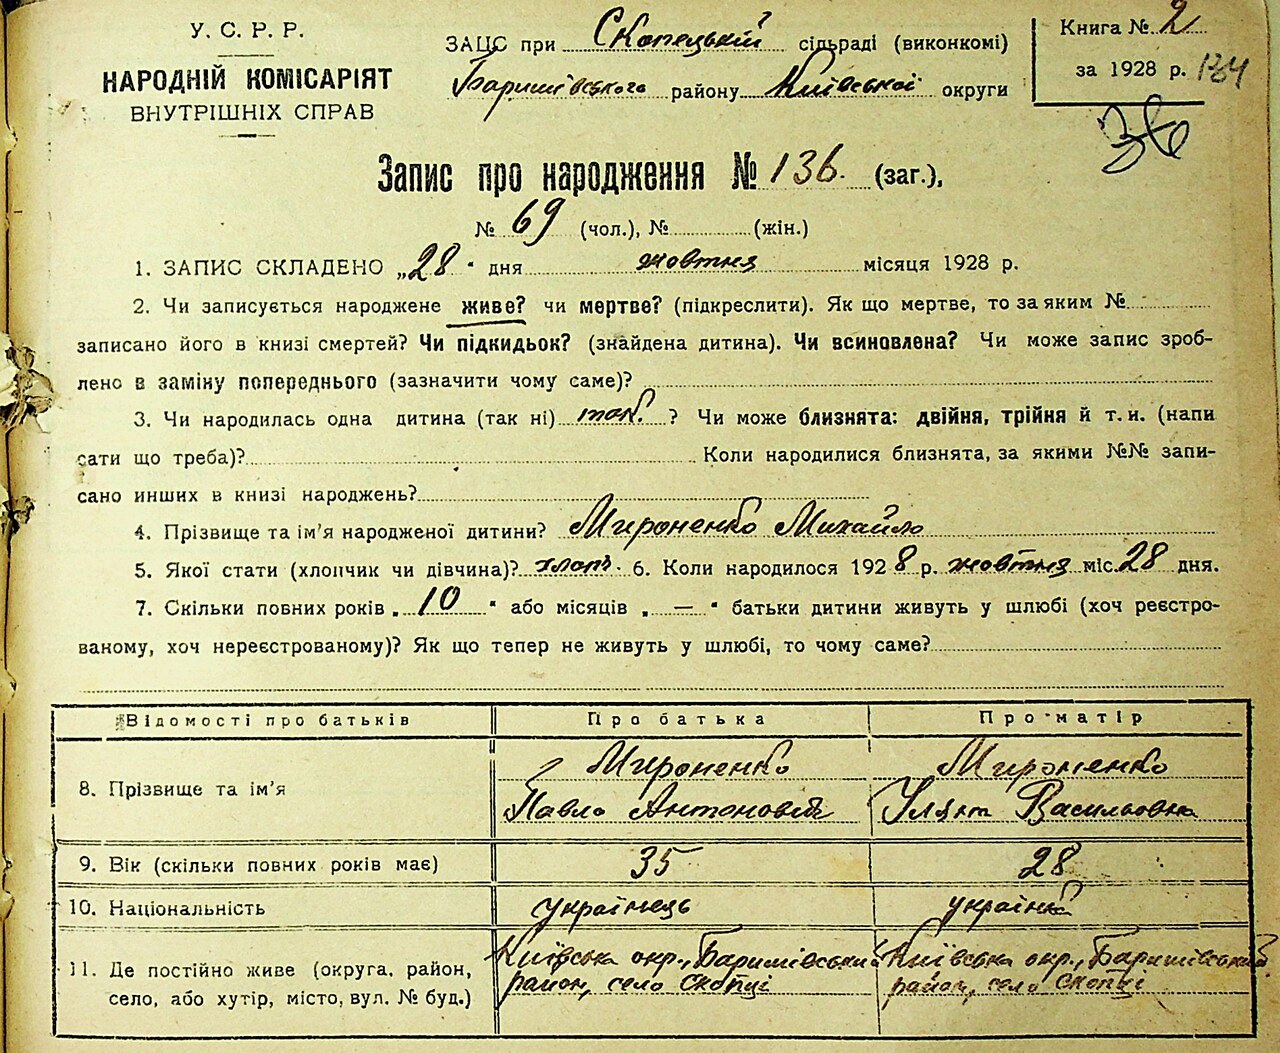 У. С. Р. Р.
НАРОДНІЙ КОМІСАРІЯТ
ВНУТРІШНІХ СПРАВ
ЗАЦС при Скопецькій сільраді (виконкомі)
Баришівського району Київської округи
Книга № 2
за 1928 р. 134
36
Запис про народження № 136. (заг.),
№ 69 (чол.), № (жін.)
1. ЗАПИС СКЛАДЕНО „28 " дня жовтня місяця 1928 р.
2. Чи записується народжене живе? чи мертве? (підкреслити). Як що мертве, то за яким №
записано його в книзі смертей? Чи підкидьок? (знайдена дитина). Чи всиновлена? Чи може запис зроб-
лено в заміну попереднього (зазначити чому саме)?
3. Чи народилась одна дитина (так ні) так. ? Чи може близнята: двійня, трійня й т. и. (напи
сати що треба)? Коли народилися близнята, за якими №№ запи-
сано инших в книзі народжень?
4. Прізвище та ім'я народженої дитини? Мироненко Михайло
5. Якої стати (хлопчик чи дівчина)? хлоп. 6. Коли народилося 1928 р. жовтня міс. 28 дня.
7. Скільки повних років „ 10 " або місяців „ — " батьки дитини живуть у шлюбі (хоч реєстро-
ваному, хоч нереєстрованому)? Як що тепер не живуть у шлюбі, то чому саме?
Відомості про батьків Про батька Про матір
8. Прізвище та ім'я Мироненко Павло Антонович Мироненко Уляна Васильовна
9. Вік (скільки повних років має) 35 28
10. Національність українець українка
11. Де постійно живе (округа, район,
село, або хутір, місто, вул. № буд.)
Київська окр., Баришівський
район, село Скопці
Київська окр., Баришівський
район, село Скопці